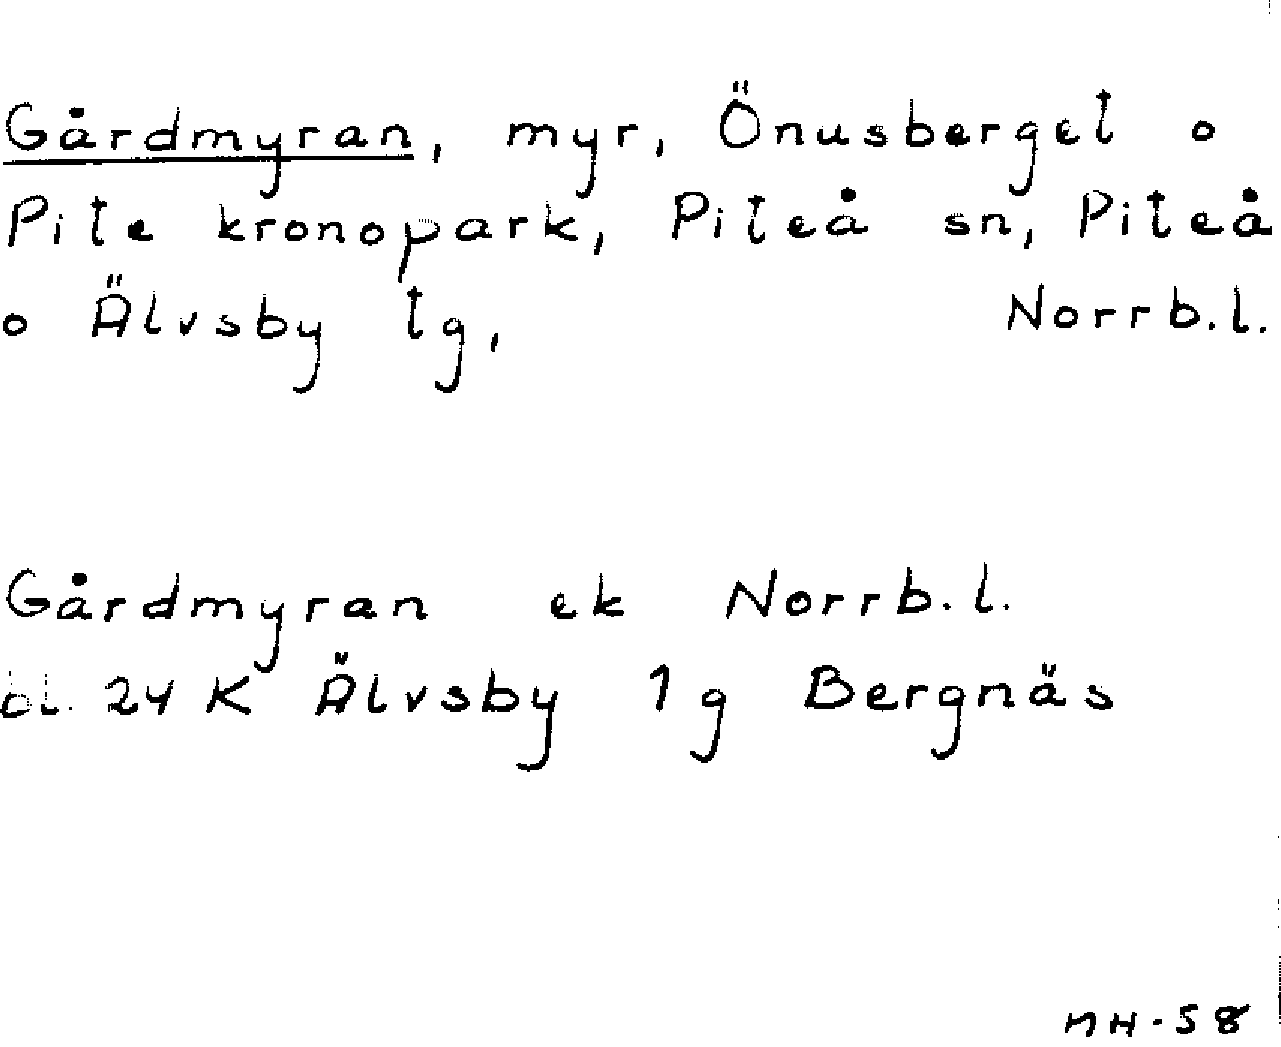 Gårdmyran, myr, Önusberget o
Pite kronopark, Piteå sn, Piteå
o Älvsby tg, Norrb.l.
Gårdmyran ek Norrb.l.
bl. 24 K Älvsby 1g Bergnäs
MH-58